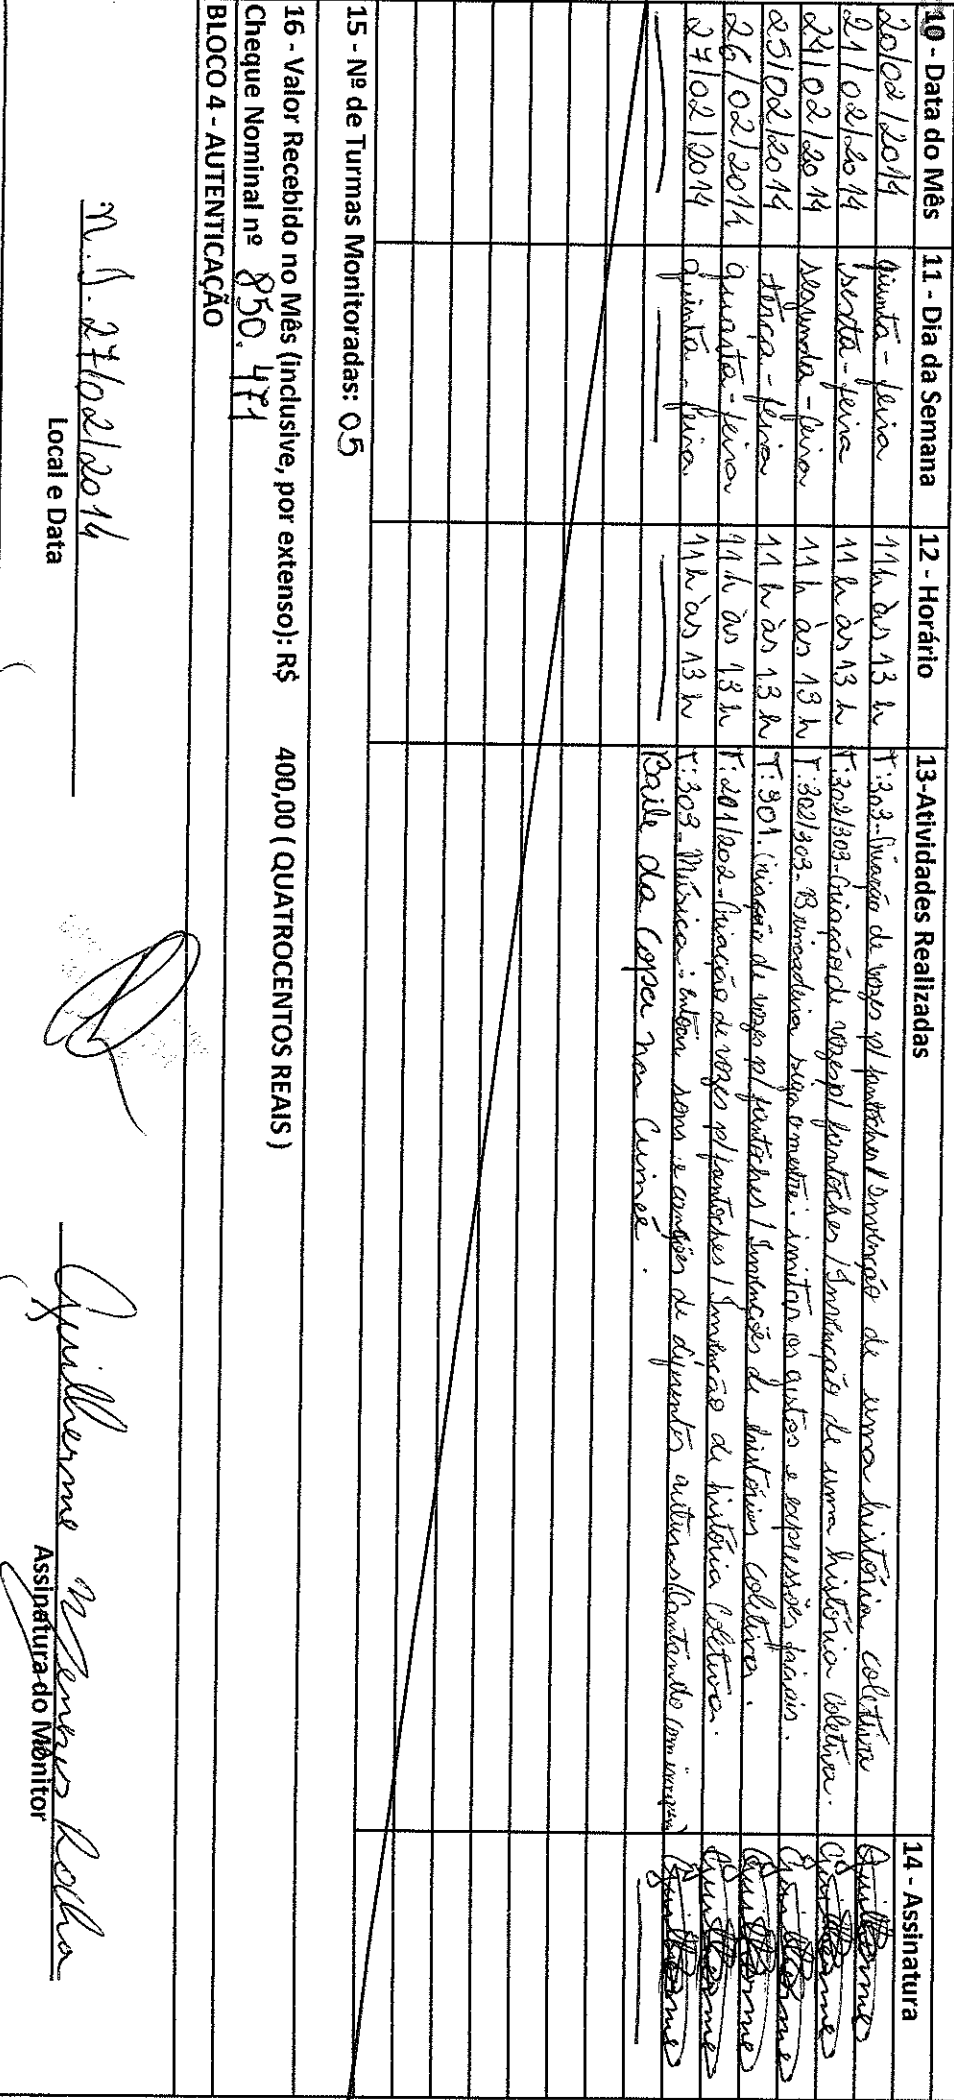 10 - Data do Mês 11 - Dia da Semana 12 - Horário 13-Atividades Realizadas 14 - Assinatura
20/02/2014 quinta-feira 11h às 13 h T:303-Criação de vozes p/ fantoches/Invenção de uma história coletiva Guilherme
21/02/2014 sexta-feira 11 h às 13 h T:302/303-Criação de vozes p/ fantoches/Invenção de uma história coletiva. Guilherme
24/02/2014 segunda-feira 11h às 13 h T:302/303-Brincadeira siga o mestre: imitar os gestos e expressões faciais. Guilherme
25/02/2014 terça-feira 11 h às 13 h T:301. Criação de vozes p/ fantoches/Invenções de histórias coletiva. Guilherme
26/02/2014 quarta-feira 11h às 13 h T:201/202-Criação de vozes p/ fantoches/Invenção de história coletiva. Guilherme
27/02/2014 quinta-feira 11h às 13 h T:303-Música: entoar sons e canções de diferentes culturas/Cantando com Guilherme
Baile da copa na
15 - Nº de Turmas Monitoradas: 05
16 - Valor Recebido no Mês (inclusive, por extenso): R$ 400,00 ( QUATROCENTOS REAIS )
Cheque Nominal nº 850.471
BLOCO 4 - AUTENTICAÇÃO
27/02/2014 Guilherme Menezes Rocha
Local e Data Assinatura do Monitor